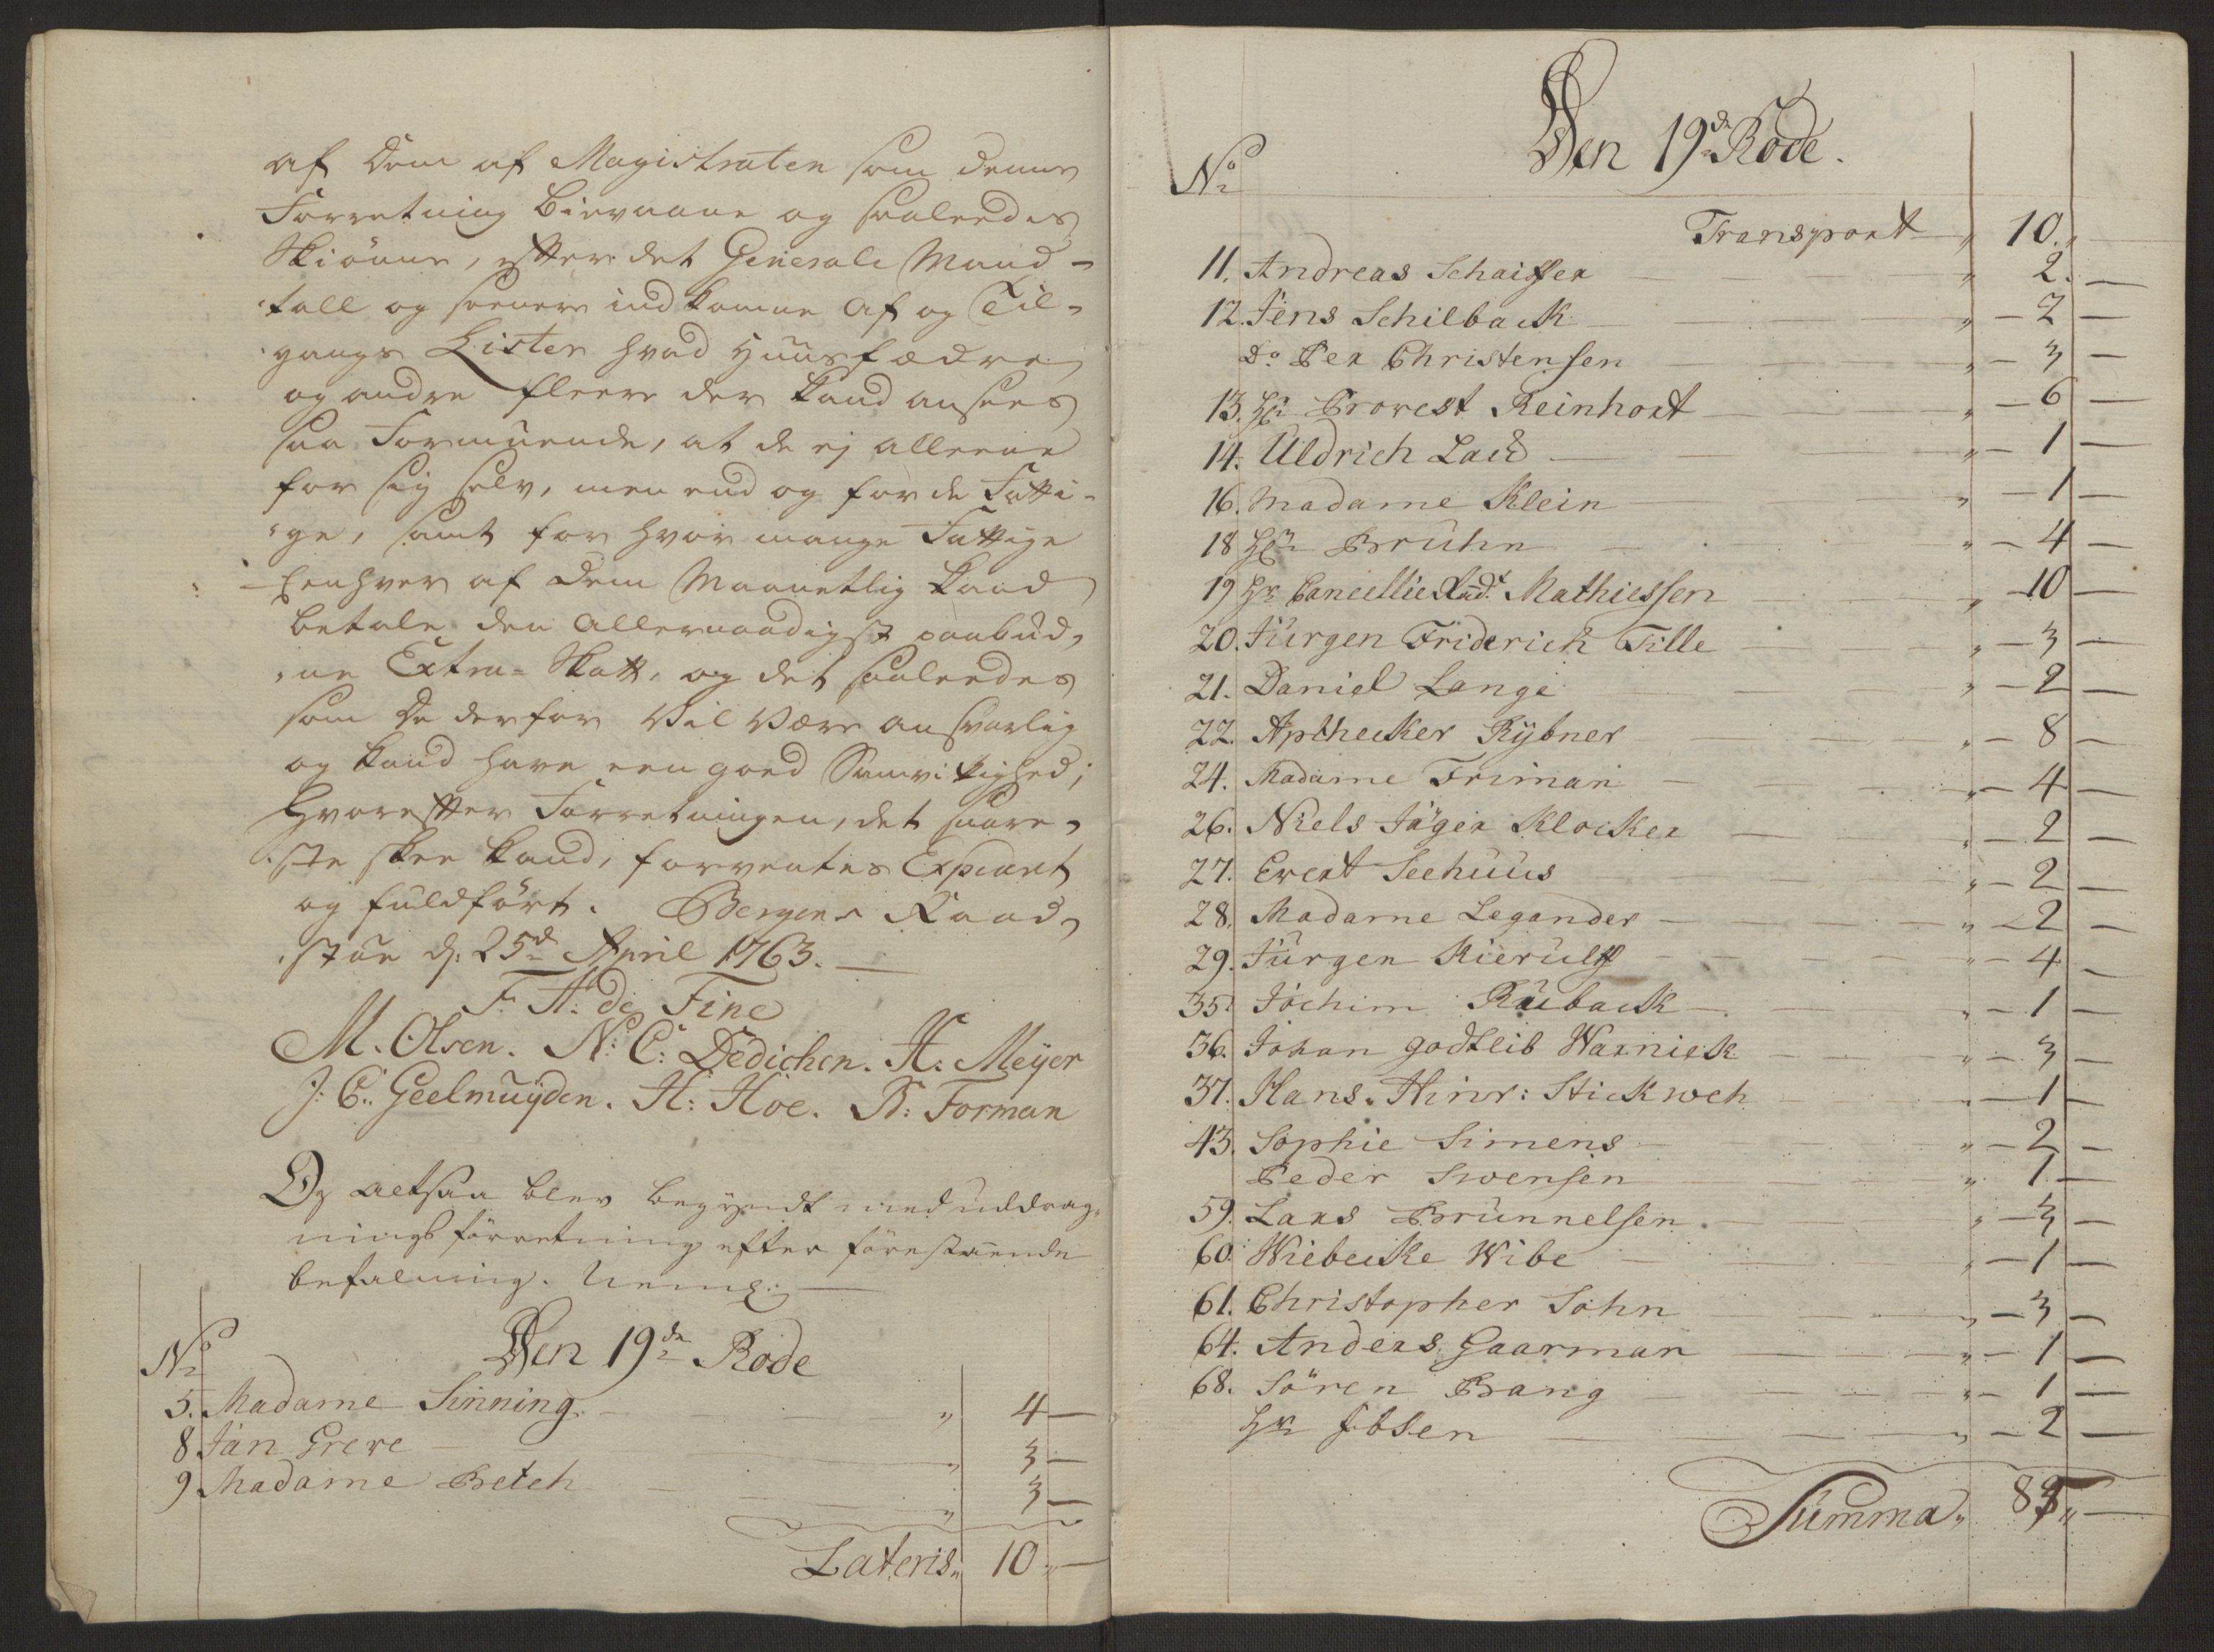 af dem af Magistraten som denne
Forretning bievaane og saaleedes
Skiönne, efter det Generale Mand-
tall og seenere indkomne Af og Til-
gangs Lister hvad Huusfædre
og andre fleere der kand ansees
saa Formuende, at de ej alleene
for sig selv, men end og for de Fatti-
ge, samt for hvor mange Fattige
Eenhver af dem Maanetlig kand
betale den allernaadigst paabud,
ne Extra-Skatt, og det saaleedes
som De derfor Vil Være ansvarlig
og kand have een goed Samvittighed;
Hvorefter Forretningen, det snare,
ste skee kand, forventes Expedeert
og fuldfört. Bergens Raad,
stue d: 25de April 1763.
F. H: de Fine
M. Olsen. N: C: Dedichen. H: Meÿer
J: C: Geelmuÿden. H: Hoe. B: Forman
Og altsaa blev begyndt med uddrag,
nings förretning efter förestaaende
befalning. Neml:
No Den 19de Rode
5. Madame Sinning " 4 —
8 Jan Greve " 3 —
9 Madame Beteh " 3 —
Lateris " 10 " —
Den 19de Rode.
No
Transport " 10 " —
11. Andreas Schaiffer " 2. —
12. Jens Schilback " — 2 —
Do Per Christensen " — 3 —
13. Hr Provest Reinhort " — 6 —
14. Uldrich Lau " — 1 —
16. Madame Klein " — 1 —
18 Hr Bruhn " — 4 —
19 Hr Cancellie Raad Mathiessen " — 10 —
20. Jürgen Friderich Tille " — 3 —
21. Daniel Lange " — 2 —
22. Apthecker Rÿbner " — 8 —
24. Madame Friman " — 4 —
26. Niels Jäger Klocker " — 2 —
27. Evert Seehuus " — 2 —
28. Madame Legander " — 2 —
29. Jürgen Kierulff " — 4 —
35. Jochim Rüback " — 1 —
36. Johan Godtlib Warnick " — 3 —
37. Hans Hinr: Stickweh " — 1 —
43. Sophie Simens " — 2 —
Peder Swensen " 1 —
59. Lars Brünnelsen " — 3 —
60. Wiebecke Wibe " — 1 —
61. Christopher Sohn " — 3 —
64. Anders Gaarman " — 1 —
68. Sören Bang " — 1 —
Hr Ibsen " — 2 —
Summa "